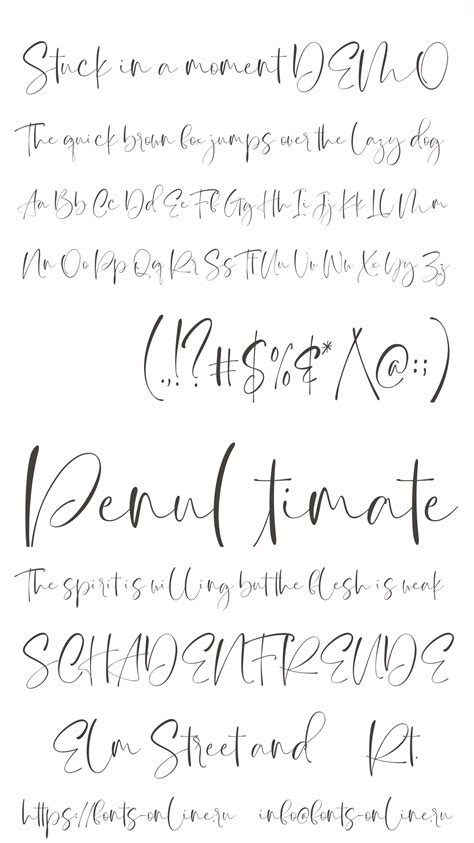 Stuck in a moment DEMO
The quick brown fox jumps over the Lazy dog
Aa Bb Cc Dd Ee Ff Gg Hh Ii Jj Kk Ll Mm
Nn Oo Pp Qq Rr Ss Tt Uu Vv Ww Xx Yy Zz
(.,!?#$%&*/\@:;)
Penul timate
The spirit is willing but the flesh is weak
SCHADENFREUDE
Elm Street and Rt.
https://fonts-online.ru info@fonts-online.ru